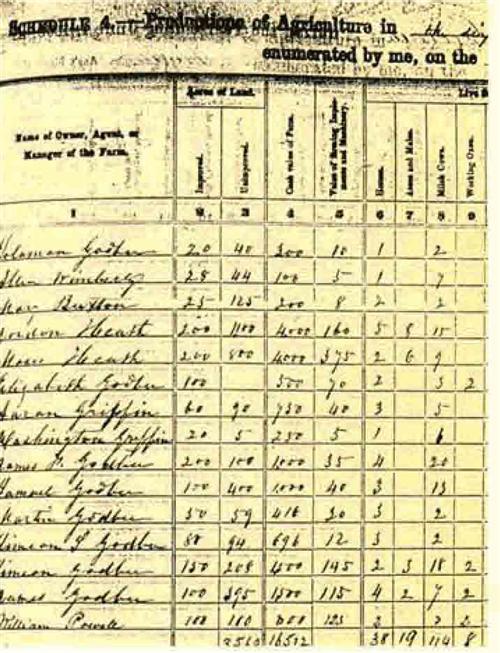 SCHEDULE 4.—Productions of Agriculture in the
enumerated by me, on the
Acres of Land. Live S
Name of Owner, Agent, or Manager of the Farm. Improved. Unimproved. Cash value of Farm. Value of farming Implements and Machinery. Horses. Asses and Mules. Milch Cows. Working Oxen.
1 2 3 4 5 6 7 8 9
Solomon Godbee 20 40 300 10 1 2
Wimberly 28 44 100 5 1 7
Buxton 25 125 200 8 2 2
Heath 200 1100 4000 160 5 8 15
Heath 200 800 4000 375 2 6 9
Elizabeth Godbee 100 500 70 2 3 2
Aaron Griffin 60 90 750 40 3 5
Washington Griffin 20 5 250 5 1 6
James Godbee 200 100 1000 35 4 20
Samuel Godbee 100 400 1000 40 3 13
Martin Godbee 50 59 416 30 3 2
Simeon S Godbee 80 94 696 12 3 2
Simeon Godbee 150 208 145 2 3 18 2
James Godbee 100 395 1500 115 4 2 7 2
William Powell 100 180 125 2
16512 38 19 114 8